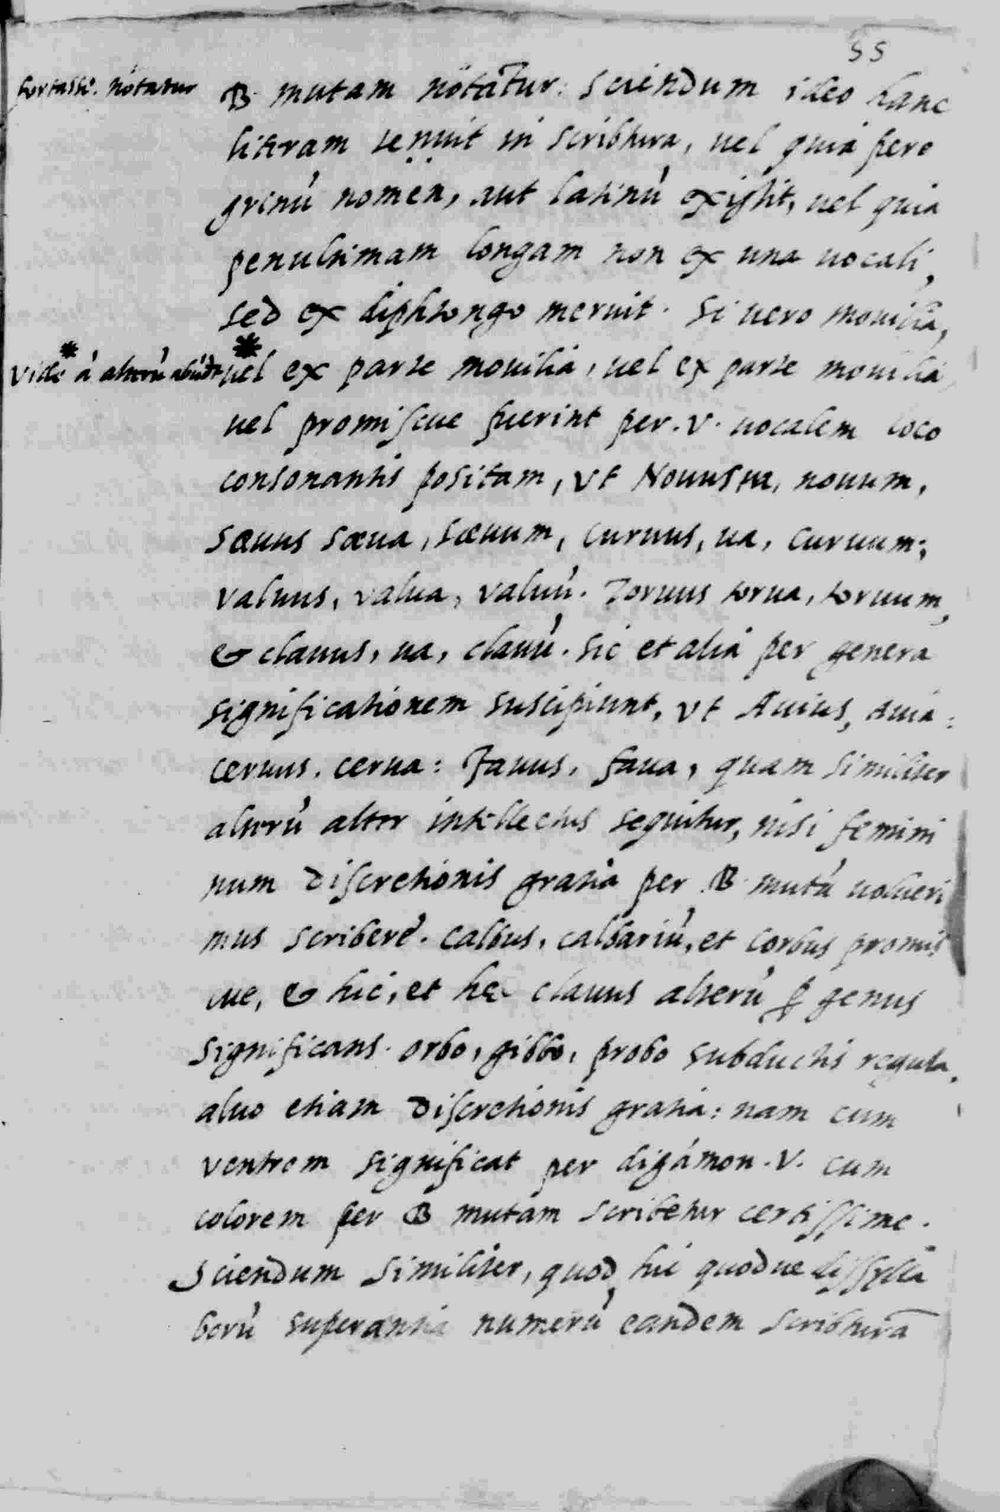 55
fortasse. notatur
B. mutam notatur. Sciendum ideo hanc
literam tenuit in scribtura, uel quia pere
grinũ nomen, aut latinũ existit, uel quia
penultimam longam non ex una uocali,
sed ex diphtongo meruit. Si uero mouilia,
Vide à alterũ
* uel ex parte mouilia, uel ex parte mouilia
uel promiscue fuerint per. V. uocalem loco
consonantis positam, vt Nouus ua, nouum,
sæuus sæua, sæuum, curuus, ua, curuum:
valuus, valua, valuũ. Toruus torua, toruum,
& clauus, ua, clauũ. sic et alia per genera
significationem suscipiunt, vt Auius, auia:
ceruus. cerua: Fauus, faua, quam similiter
alterũ alter intellectus sequitur, nisi femini
num discretionis gratia per B mutã uolueri
mus scribere. Calbus, calbariũ, et corbus promis
cue, & hic, et hæ clauus alterũ ꝑ genus
significans. orbo, gibbo, probo subductis regula,
aluo etiam discretionis gratia: nam cum
ventrem significat per digámon. V. cum
colorem per B mutam scribetur certissime.
Sciendum similiter, quod hi quodue dissylla
borũ superantia numerũ eandem scribturã